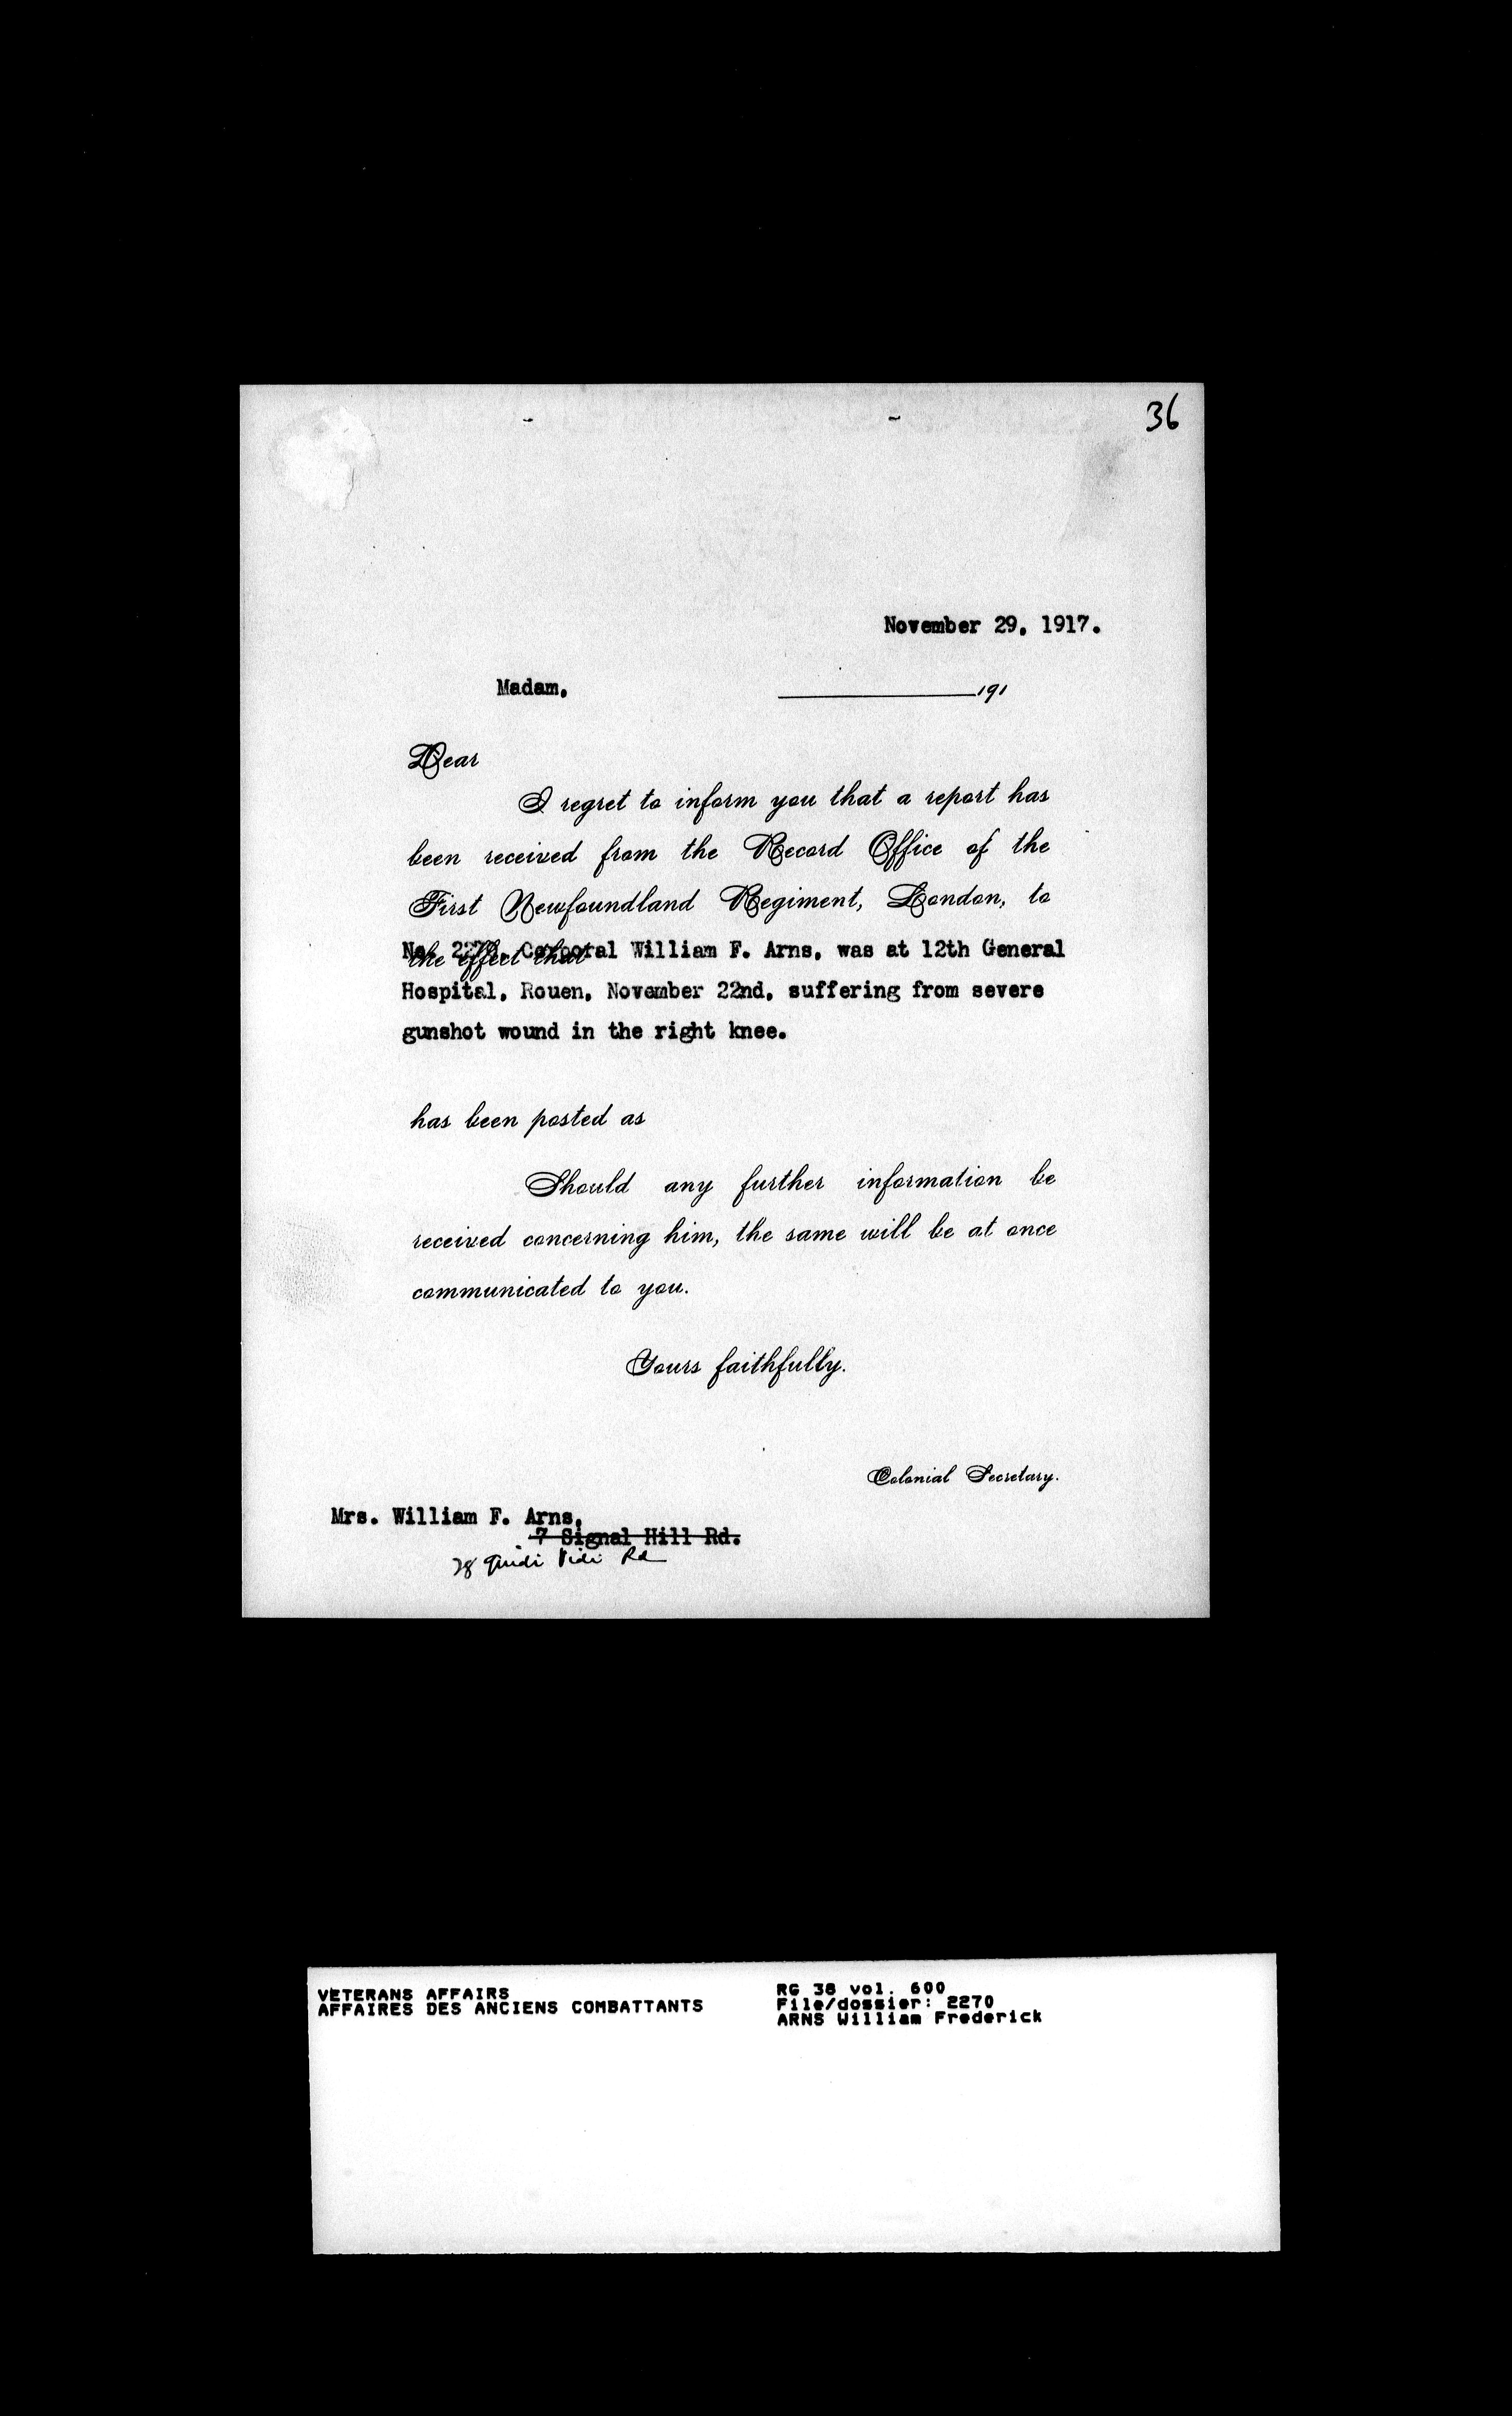 36
November 29, 1917.
Madam,
191
Dear
I regret to inform you that a report has
been received from the Record Office of the
First Newfoundland Regiment, London, to
the effect that
No. 2270, Corporal William F. Arns, was at 12th General
Hospital, Rouen, November 22nd, suffering from severe
gunshot wound in the right knee.
has been posted as
Should any further information be
received concerning him, the same will be at once
communicated to you.
Yours faithfully.
Colonial Secretary.
Mrs. William F. Arns,
7 Signal Hill Rd.
28 Quidi Vidi Rd
VETERANS AFFAIRS
AFFAIRES DES ANCIENS COMBATTANTS
RG 38 vol. 600
File/dossier: 2270
ARNS William Frederick